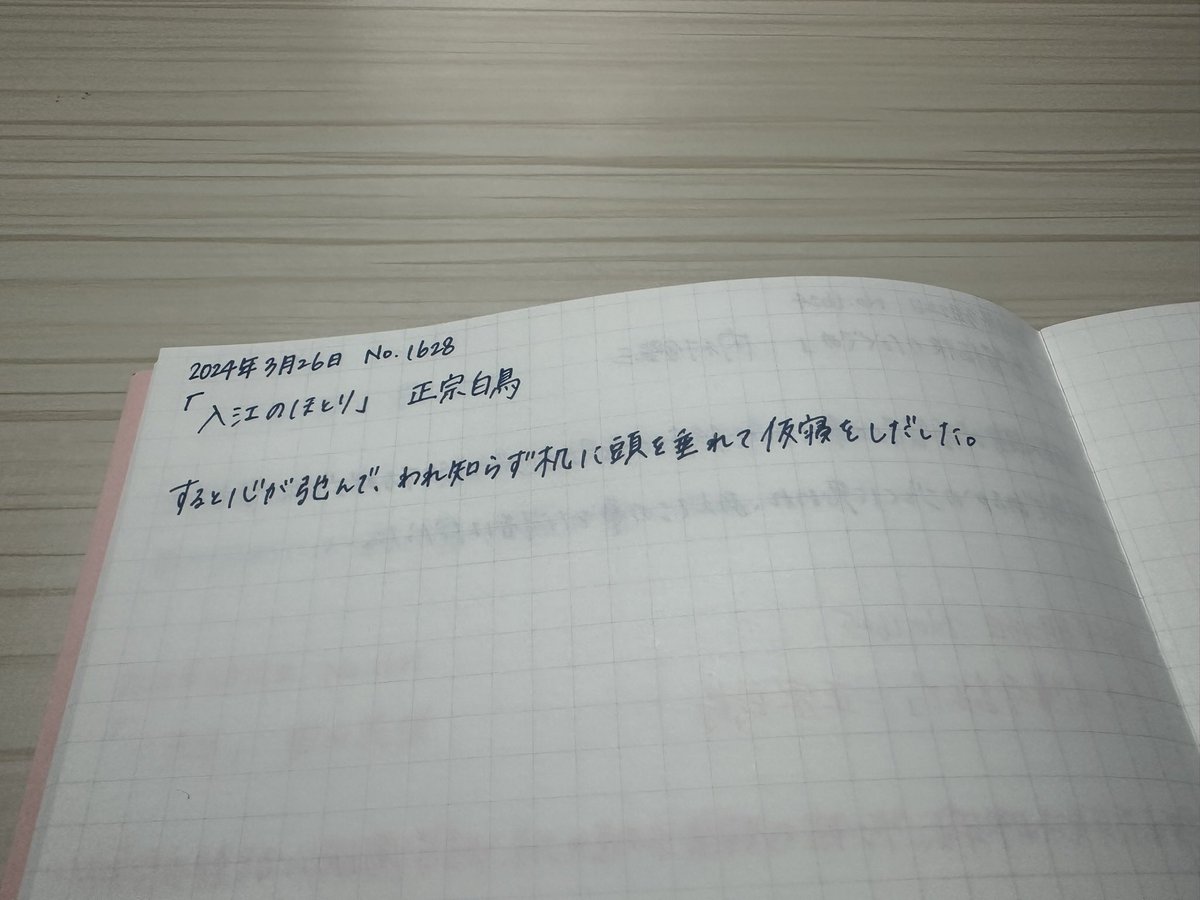 2024年3月26日 No.1628
「入江のほとり」 正宗白鳥
すると心が弛んで、われ知らず机に頭を垂れて仮寝をしだした。